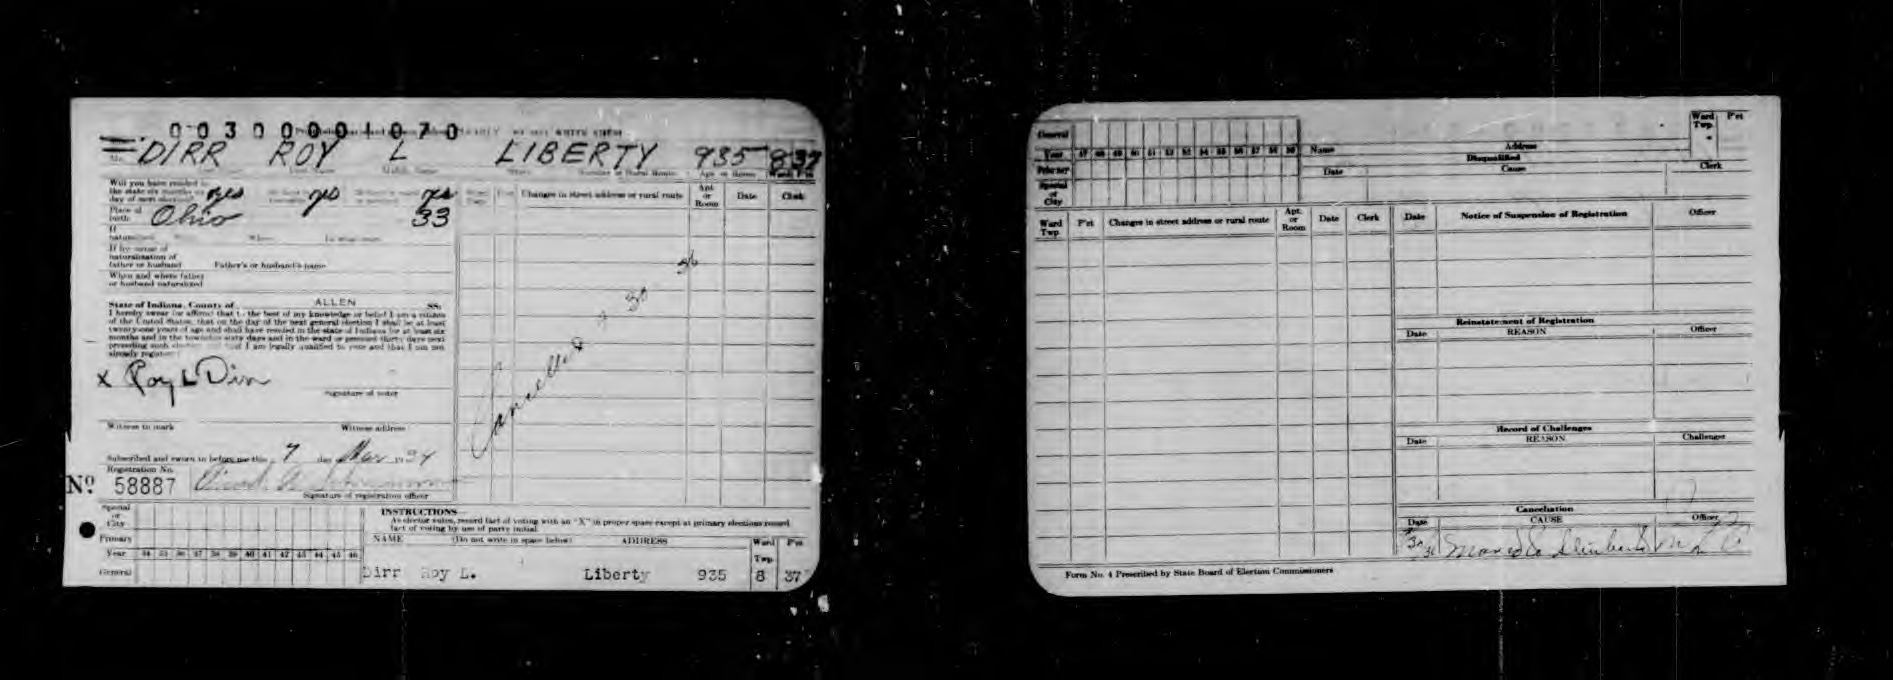 0 0 3 0 0 0 0 1 0 7 0
DIRR ROY L LIBERTY 935 8 37
Will you have resided in
the state six months on
day of next election? yes yes yes
Place of
birth Ohio 33
If
By virtue of
naturalization of
father or husband Father's or husband's name
When and where father
or husband naturalized
State of Indiana, County of ALLEN SS:
I hereby swear (or affirm) that to the best of my knowledge or belief I am a citizen
of the United States, that on the day of the next general election I shall be at least
twenty-one years of age and shall have resided in the state of Indiana for at least six
months and in the township sixty days and in the ward or precinct thirty days next
preceding such election that I am legally qualified to vote and that I am not
already registered
x Roy L Dirr
Signature of voter
Witness to mark Witness address
Subscribed and sworn to before me this 7 day Mar 1934
Registration No.
No. 58887
Signature of registration officer
Changes in street address or rural route Apt. or Room Date Clerk
Cancelled 9 30 36
Special
or
City
Primary
Year 34 35 36 37 38 39 40 41 42 43 44 45 46
General
INSTRUCTIONS
As elector votes, record fact of voting with an "X" in proper space except at primary elections record
fact of voting by use of party initial.
NAME (Do not write in space below) ADDRESS Ward Twp. P'ct
Dirr Roy L. Liberty 935 8 37
General
Year 47 48 49 50 51 52 53 54 55 56 57 58 59
Primary
Special
or
City
Name Address Ward Twp. P'ct
Disqualified
Date Cause Clerk
Ward Twp. P'ct Changes in street address or rural route Apt. or Room Date Clerk
Date Notice of Suspension of Registration Officer
Reinstatement of Registration
Date REASON Officer
Record of Challenges
Date REASON Challenger
Cancellation
Date CAUSE Officer
Moved to
Form No. 4 Prescribed by State Board of Election Commissioners